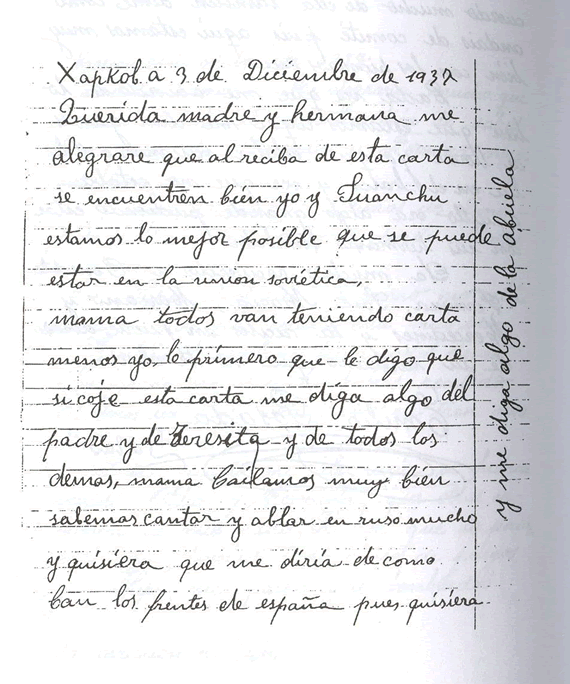 Харков. a 3 de. Diciembre de 1937
Querida madre y hermana me
alegrare que al reciba de esta carta
se encuentren bién yo y Juanchu
estamos lo mejor posible que se puede
estar en la unión soviética,
mama todos van teniendo carta
menos yo, lo primero que le digo que
si coje esta carta me diga algo del
padre y de Teresita y de todos los
demas, mama bailamos muy bién
sabemas cantar y ablar en ruso mucho
y quisiera que me diria de como
ban los frentes de españa pues quisiera
y me diga algo de la abuela